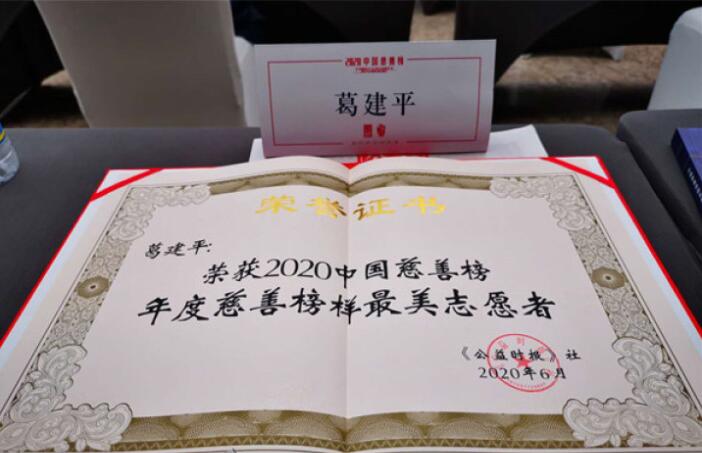 2020中国慈善榜
葛建平
荣誉证书
葛建平:
荣获2020中国慈善榜
年度慈善榜样最美志愿者
《公益时报》社
2020年6月